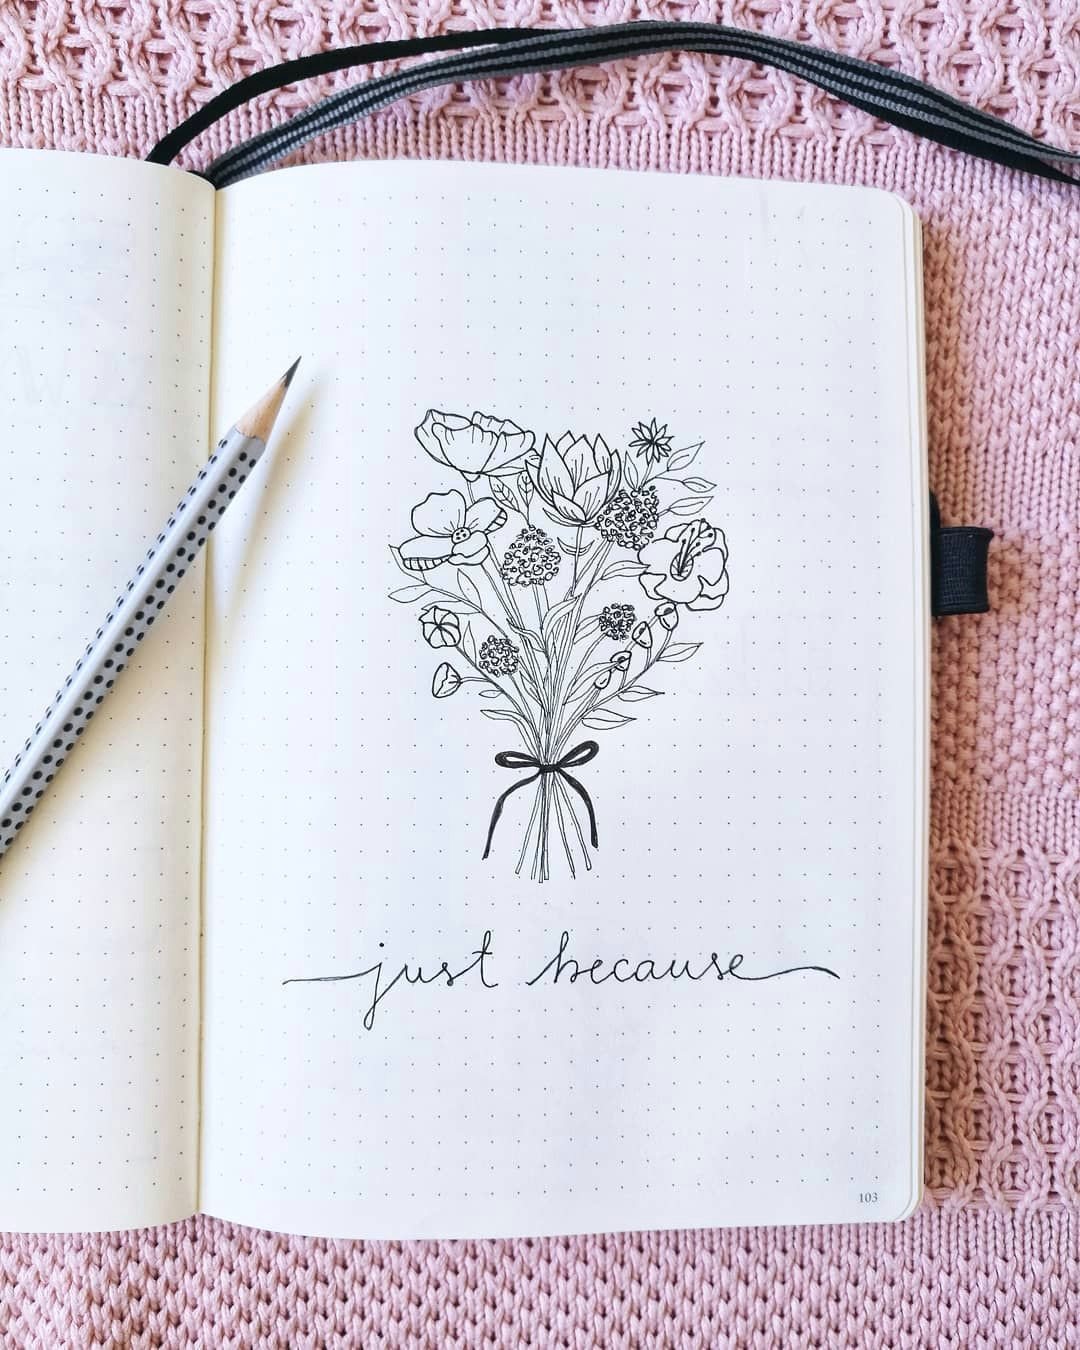 just because
103